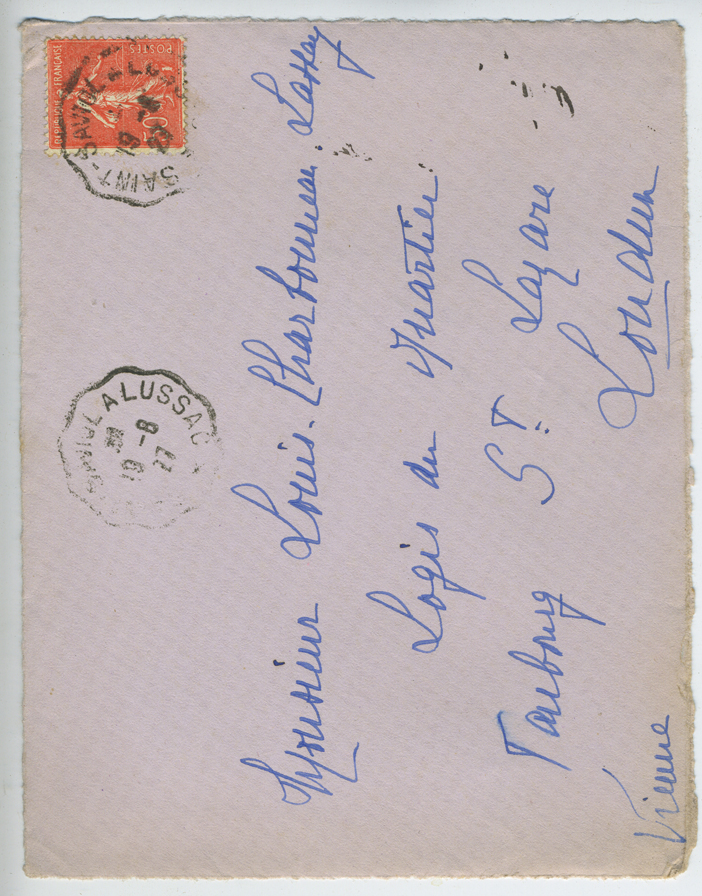 REPUBLIQUE FRANÇAISE
POSTES
50
SAINT-SAVIN
19 -8
A LUSSAC
19 -8
27
Monsieur Louis-Charbonneau Lassay
Logis du Quartier.
Faubourg St Lazare
Loudun
Vienne